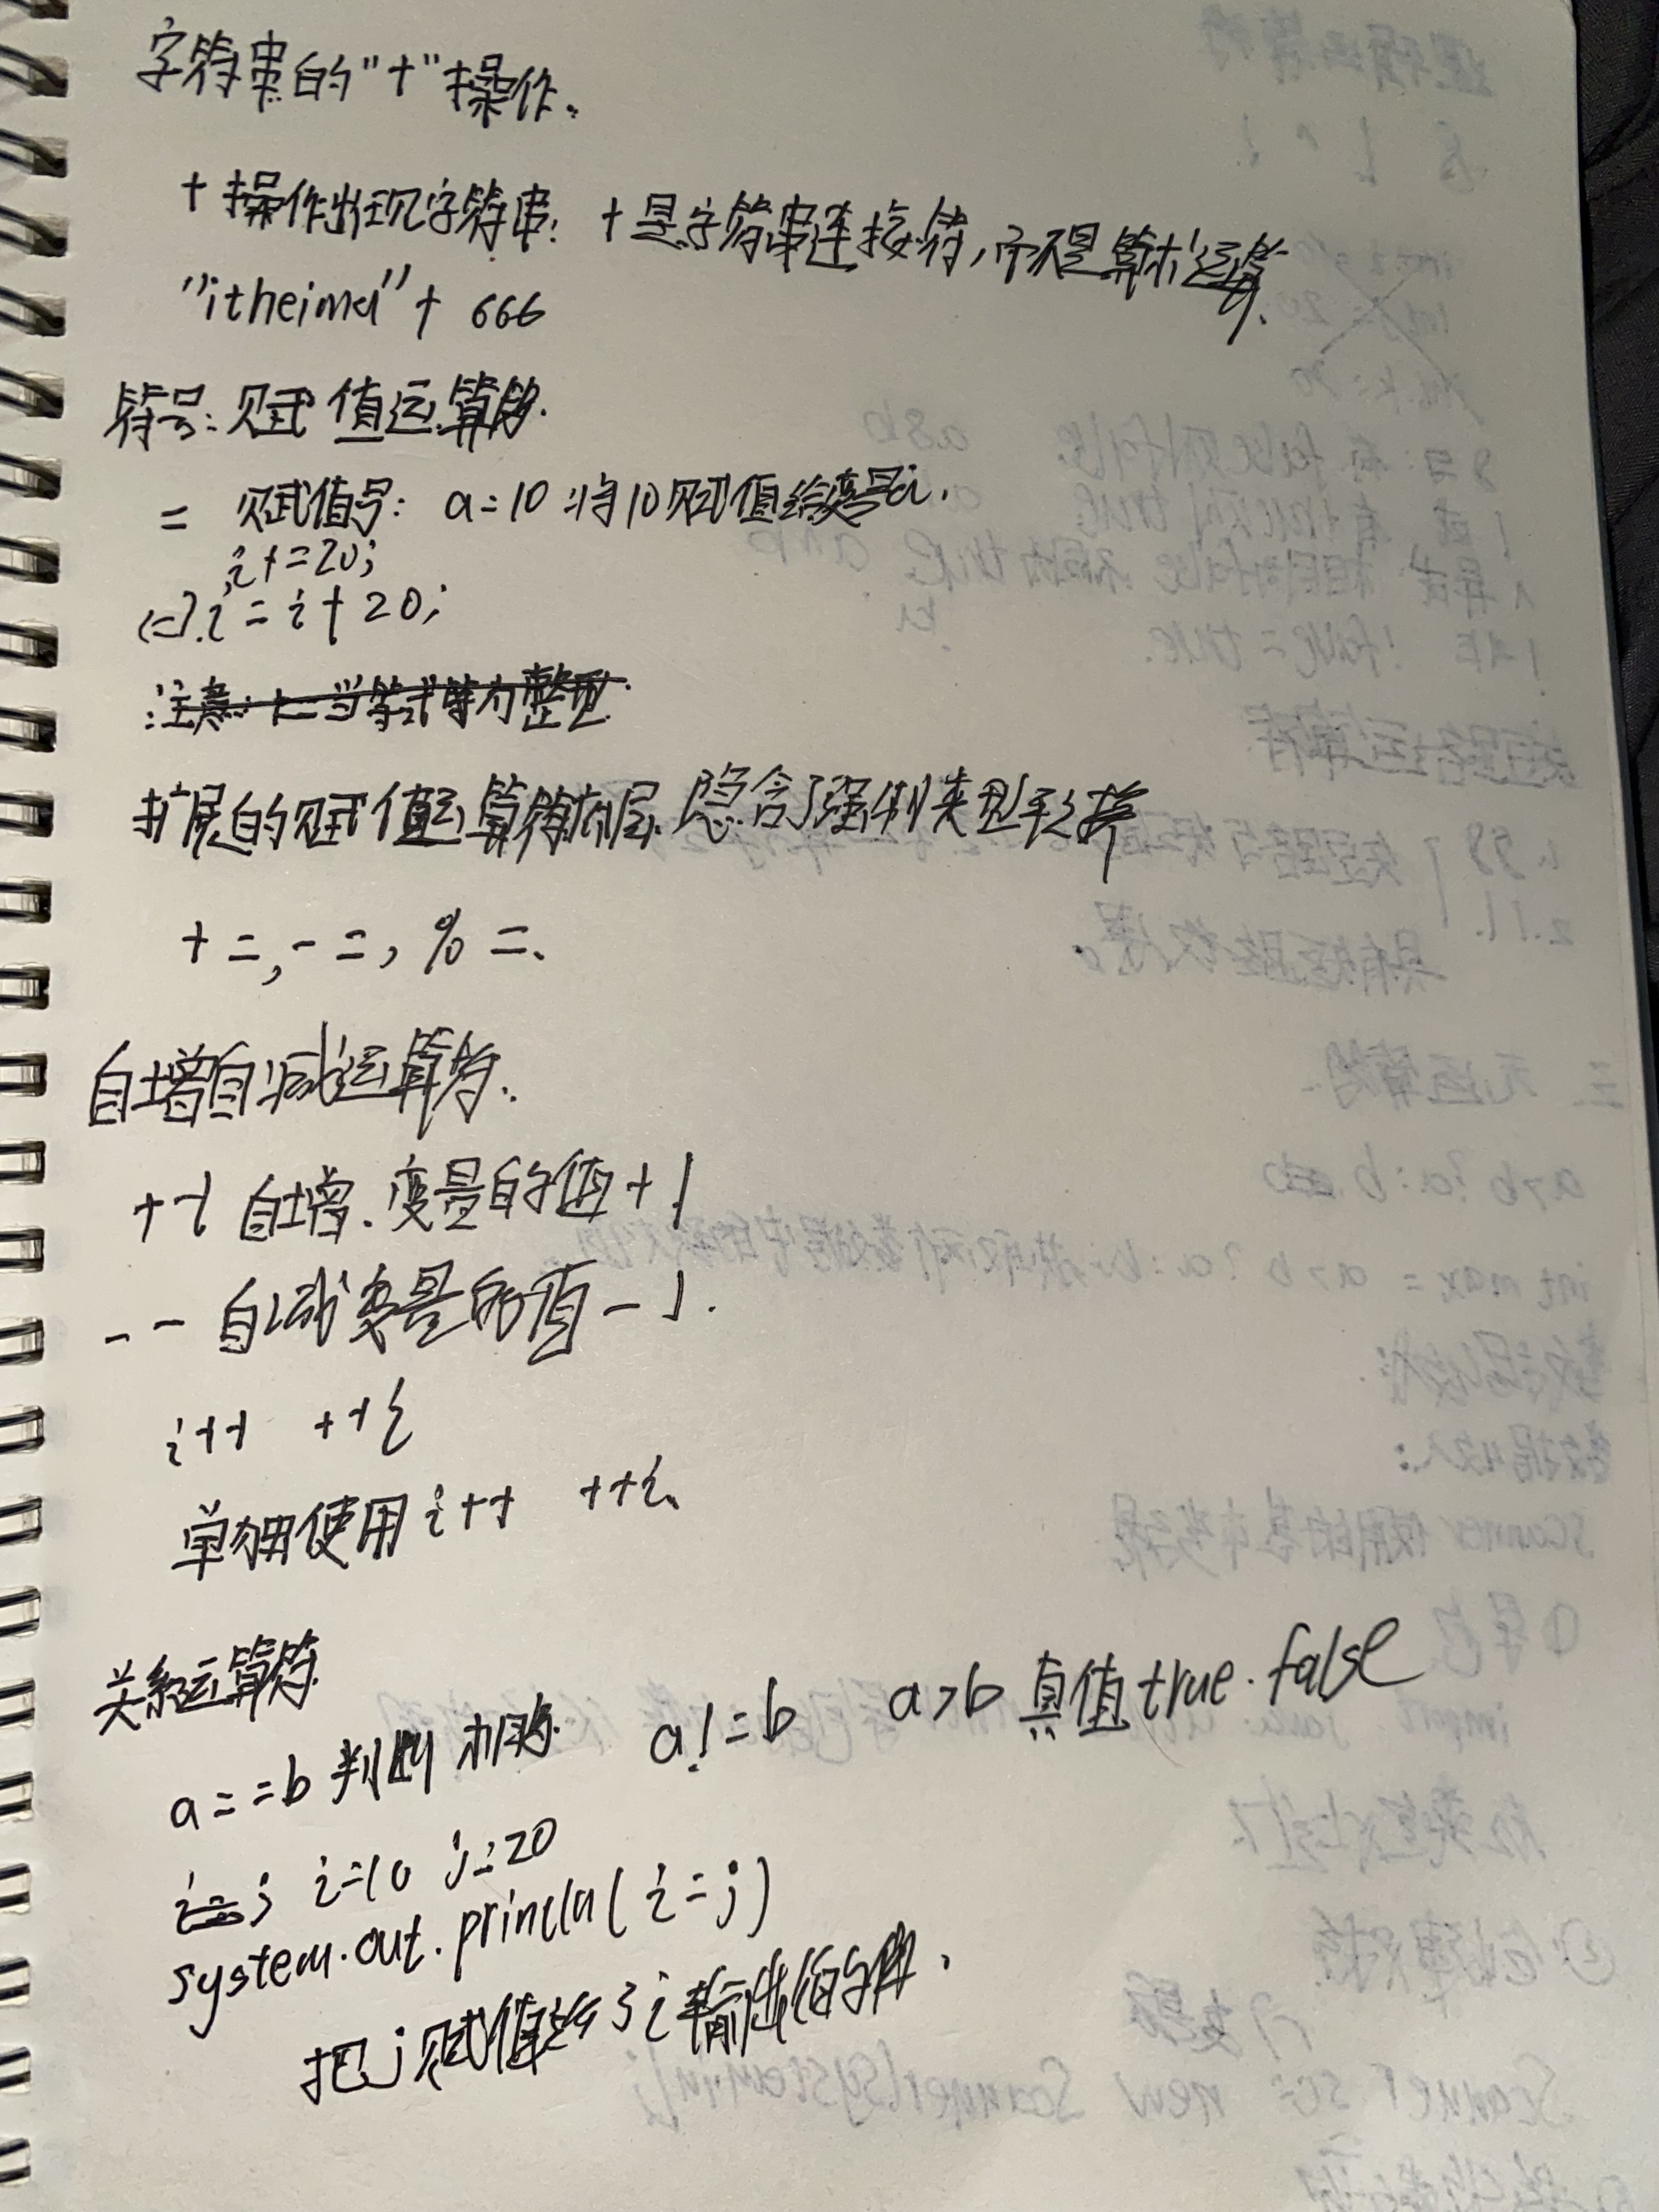 字符串的"+"操作.
+操作出现字符串: +是字符串连接符,而不是算术运算.
"itheima"+ 666
符号:赋值运算符.
= 赋值号: a=10 将10赋值给变量i.
i+=20;
i = i+20;
注意: 1. 当等式等为整型.
扩展的赋值运算符底层.隐含了强制类型转换
+=,-=,%=.
自增自减运算符.
++ 自增.变量的值+1
-- 自减变量的值-1.
i++ ++i
单独使用 i++ ++i.
关系运算符.
a==b判断 a!=b a>b 真值true.false
i=j i=10 j=20
system.out.println(i=j)
把j赋值给了i 输出